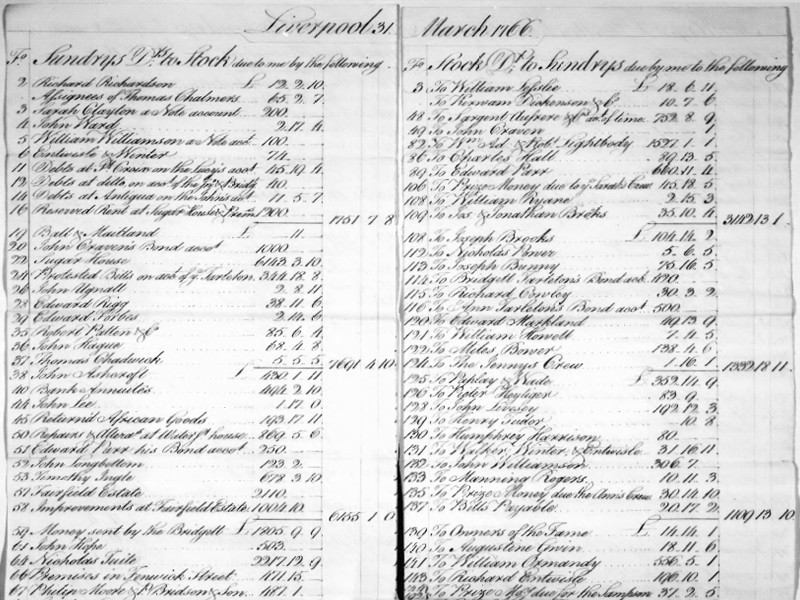 Liverpool 31 March 1766
Fo. Sundrys Drs to Stock due to me by the following
2 Richard Richardson £ 12.2.10
Assignees of Thomas Chalmers 65.2.7
3 Sarah Clayton a Note account 200
4 John Ward 2.17.4
5 William Williamson a Note acct. 100
6 Entwistle & Winter 74
11 Debts at St. Croix on the Lucy's acct. 45.19.4
12 Debts at ditto on acct. of the 40
14 Debts at Antigua on the John's acct. 11.5.7
16 Reserved Rent at Sugar House 1200
1751 7 8
19 Ball & Maitland £ 11
20 John Craven's Bond acct. 1000
22 Sugar House 6143.3.10
24 Protested Bills on acct. of Tarleton 344.18.8
26 John Ugnall 2.8.11
28 Edward Rigg 38.11.6
29 Edward Forbes 2.14.6
35 Robert Patten & Co 85.6.4
36 John Hague 68.4.8
37 Thomas Chadwick 5.5.5
7691 4 10
38 John Ashcroft £ 430.1.11
40 Bank Annuities 494.2.10
44 John Lee 1.17.0
45 Returnd African Goods 193.17.11
50 Repairs & house 869.5.6
51 Edward Parr his Bond acct. 250
52 John Longbottom 123.2
53 Timothy Ingle 678.3.10
57 Fairfield Estate 2110
58 Improvements at Fairfield Estate 1004.10
6155 1 0
59 Money sent by the Bridgett £ 1805.9.9
61 John Hope 503
64 Nicholas Tuite 2217.12.9
66 Premises in Fenwick Street 471.15
67 Philip Moore & Bridson & Son 487.1
Fo. Stock Dr. to Sundrys due by me to the following
3 To William Leslie £ 18.6.11
To Kerwan Dickenson & Co 10.7.6
48 To Sargent Aufrere & Co acct. of time 752.8.9
49 To John Craven 1
82 To Wm. Ad. & Robt. Lightbody 1527.1.1
86 To Charles Hall 39.13.5
89 To Edward Parr 660.11.4
106 To Prize Money due to ye Sarah's Crew 45.18.5
108 To William Ryane 2.15.3
109 To Jos. & Jonathan Brooks 35.10.4
3142 13 1
108 To Joseph Brooks £ 104.14.2
112 To Nicholas Power 5.6.5
113 To Joseph Bunny 75.16.5
114 To Bridgett Tarleton's Bond acct. 420
115 To Richard Cowley 30.3.2
116 To Ann Tarleton's Bond acct. 500
120 To Edward Markland 49.13.9
121 To William Howell 7.4.5
122 To Miles Bower 138.4.6
124 To The Jennys Crew 1.16.1
1332 18 11
125 To Ashley & Wade £ 352.14.9
126 To Peter Heyliger 83.9
128 To John Livesey 192.12.3
129 To Henry Tudor 10.8
130 To Humphrey Harrison 60
131 To Walker, Winter, & Entwisle 31.16.11
132 To John Williamson 306.7
133 To Manning Rogers 10.11.3
135 To Prize Money due the Anns Crew 30.14.10
137 To Bills Payable 20.17.2
1109 13 10
139 To Owners of the Fame £ 14.14.1
140 To Augustine Gwin 18.11.6
141 To William Ormandy 556.5.1
143 To Richard Entwisle 196.10.1
To Prize Mo. due for the Sampson 31.2.5